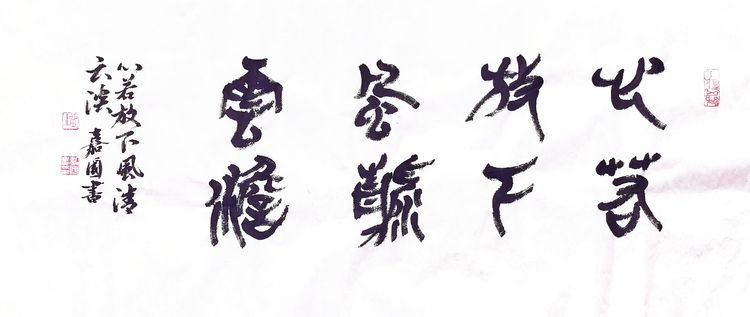 心若
放下
風清
雲澹
心若放下風清
云淡 嘉国書